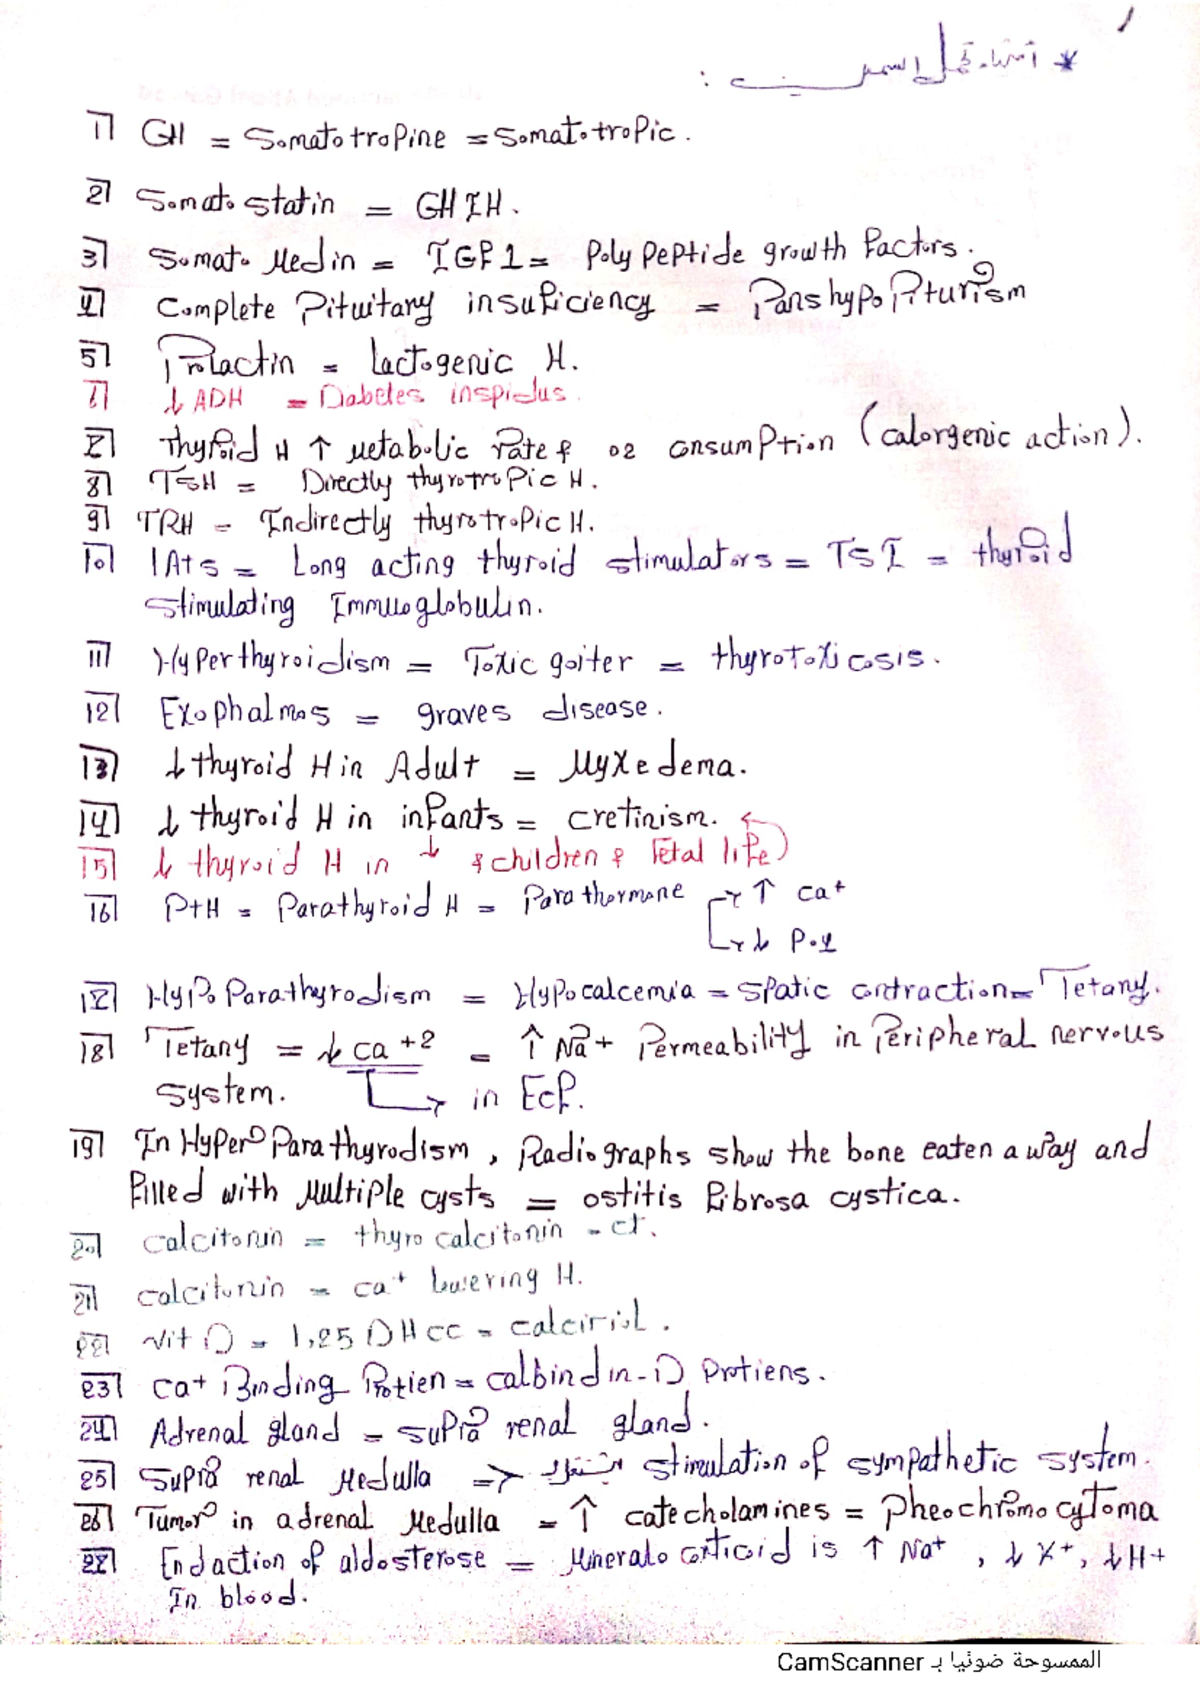 * أشياء لها اسمين :
1) GH = Somatotropine = Somatotropic .
2) Somatostatin = GHIH .
3) Somato Medin = IGF1 = Poly peptide growth factors .
4) Complete Pituitary insuficiency = Panshypopiturism
5) Prolactin = Lactogenic H.
↓ ADH = Diabetes inspidus .
7) Thyroid H ↑ Metabolic rate & O2 consumption (calorgenic action).
8) TSH = Directly thyrotropic H.
9) TRH = Indirectly thyrotropic H.
10) lAts = Long acting thyroid stimulators = TSI = thyroid
stimulating Immuoglobulin.
11) Hyperthyroidism = Toxic goiter = thyrotoxicosis .
12) Exophalmos = graves disease .
13) ↓ thyroid H in Adult = Myxedema.
14) ↓ thyroid H in infants = cretinism.
15) ↓ thyroid H in ↓ & children & Fetal life
16) PtH = Parathyroid H = Parathormone → ↑ ca+
→ ↓ Po4
17) Hypo Parathyrodism = Hypocalcemia = Spatic contraction = Tetany.
18) Tetany = ↓ ca+2 = ↑ Na+ Permeability in Peripheral nervous
system. → in Ecf.
19) In HyperParathyrodism , Radiographs show the bone eaten away and
filled with Multiple cysts = ostitis fibrosa cystica .
20) calcitonin = thyrocalcitonin = ct.
21) calcitonin = ca+ lowering H.
22) vit D = 1,25 DHCC = calciriol .
23) ca+ Binding Protien = calbindin-D Protiens .
24) Adrenal gland = supra renal gland .
25) Supra renal Medulla => stimulation of sympathetic system .
26) Tumor in adrenal Medulla = ↑ catecholamines = Pheochromocytoma
27) End action of aldosterose = Mineralo corticoid is ↑ Na+ , ↓ K+, ↓ H+
In blood .
الممسوحة ضوئيا بـ CamScanner